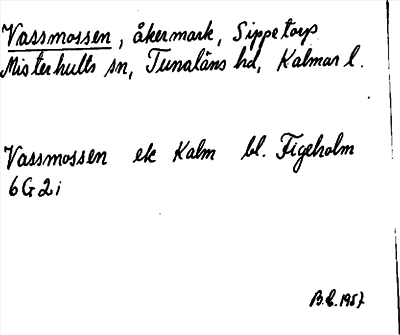 Vassmossen, åkermark, Sippetorp
Misterhults sn, Tunaläns hd, Kalmar l.
Vassmossen ek Kalm bl. Figeholm
6G2i
B.L. 1957